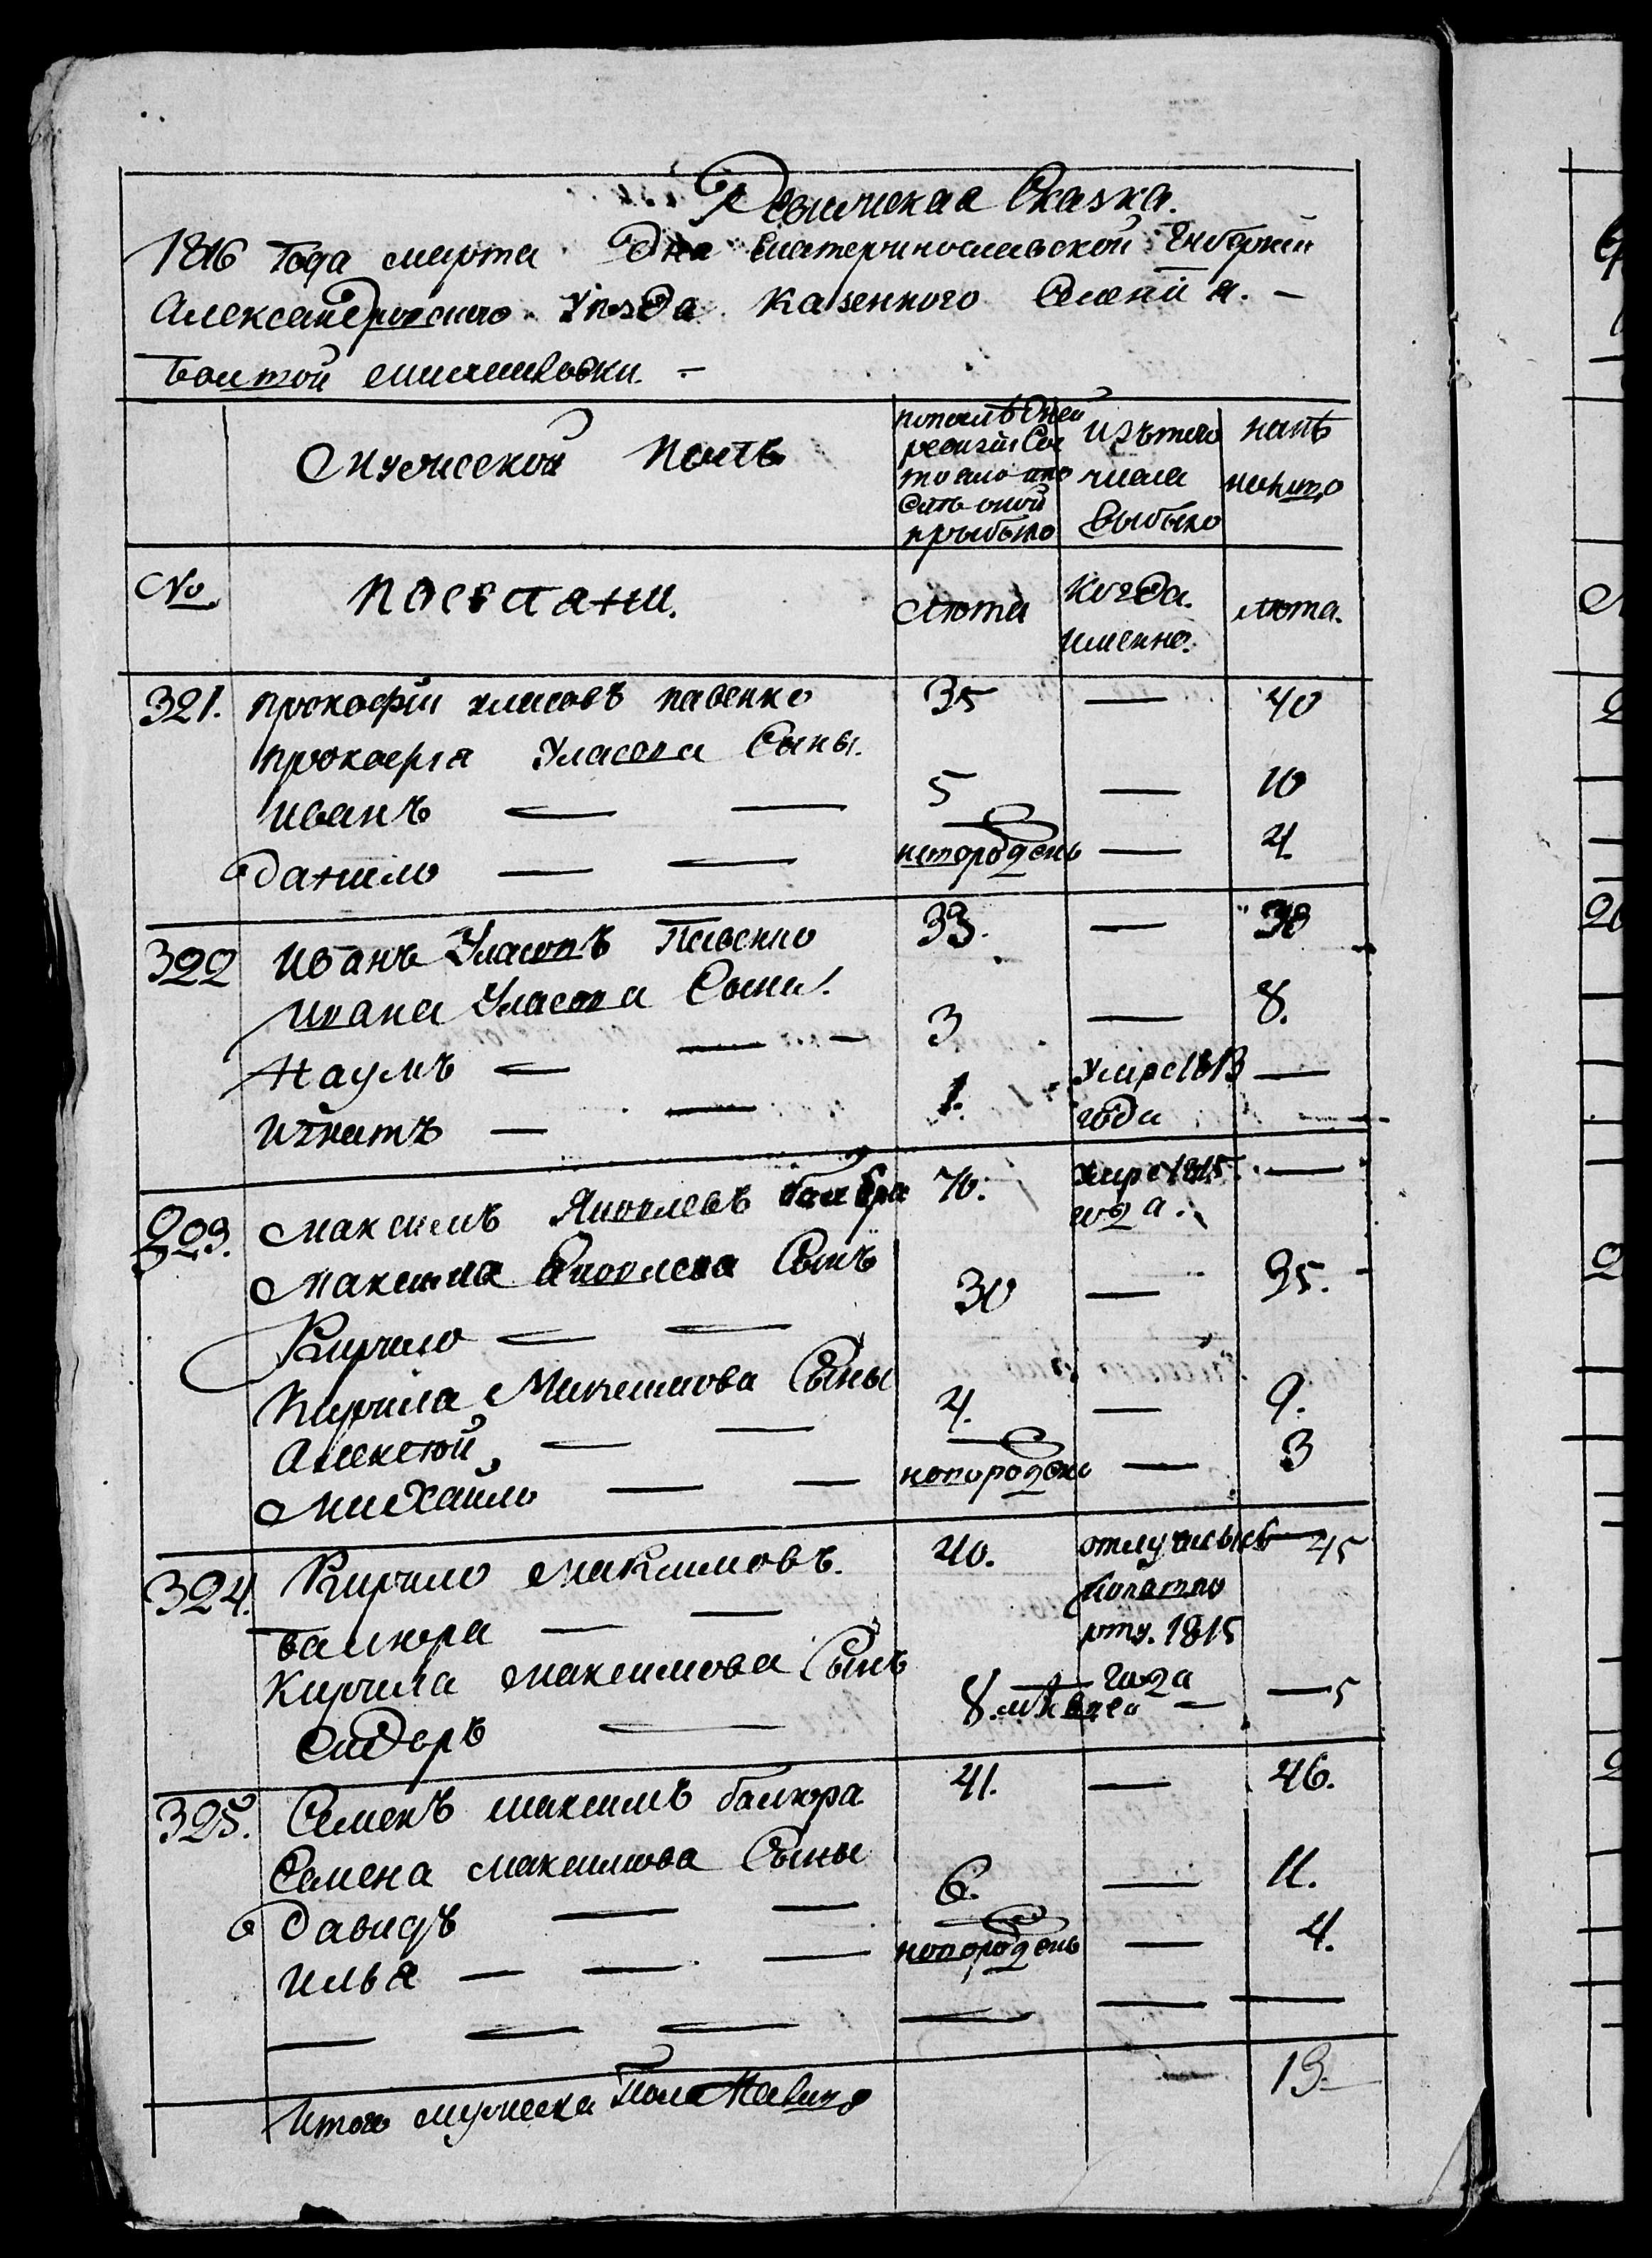 Ревижская Сказка.
1816 Года марта Дня Екатеринославской Губернии
Александровского Уезда Казенного Селения. —
Болтой —
Мужеской Полъ
попослѣдней ревизіи Состояло ипо Слѣ оной прыбыло
Изътого числа Выбыло
налѣ
No
Посѣлани.
Лѣта
Когда. именно.
лѣта.
321. прокофій уласовъ павенко 35 — 40
прокофія Уласова Сыны.
иванъ — — 5 — 10
данило — — новорожденъ — 4.
322 Иванъ Уласовъ Павенко 33. — 38
Ивана Уласова Сыны.
Наумъ — — 3 — 8.
Игнатъ — — 1. Умре 1813 года —
323. Максимъ Яковлевъ 70. умре 1815. года. —
Максима Яковлева Сынъ
Кирило — — 30 — 35.
Кирила Максимова Сыны
Алексѣй — — 4. — 9.
Михайло — — новорожденъ — 3
324. Кирило Максимовъ. 40. отлучысь 45
Балюра — —
1815 года
Кирила Максимова Сынъ
Сидоръ — 8. — 5
325. Семенъ максимъ балюра 41. — 46.
Семена максимова Сыны
Давидъ — — 6. — 11.
Илья — — — новорожденъ — 4.
— — — — — —
Итого мужеска Пола Налицо — 13